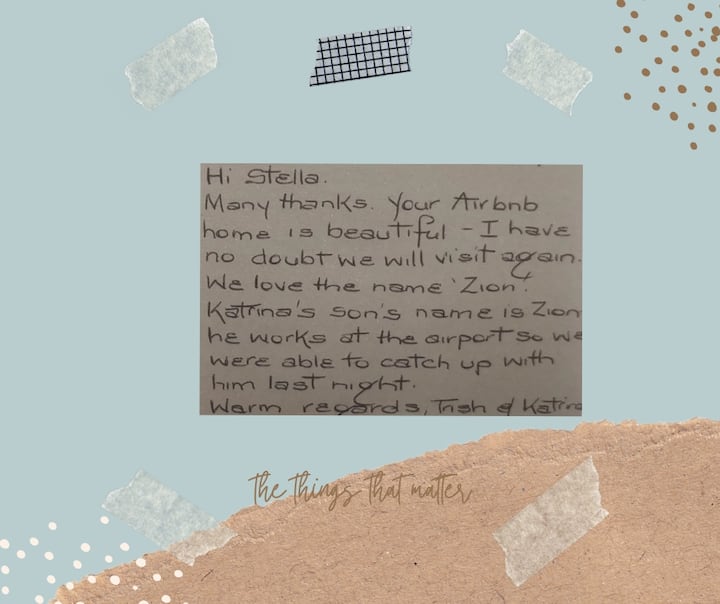 Hi Stella.
Many thanks. Your Airbnb
home is beautiful - I have
no doubt we will visit again.
We love the name 'Zion'.
Katrina's son's name is Zion
he works at the airport so we
were able to catch up with
him last night.
Warm regards, Trish & Katrina
the things that matter